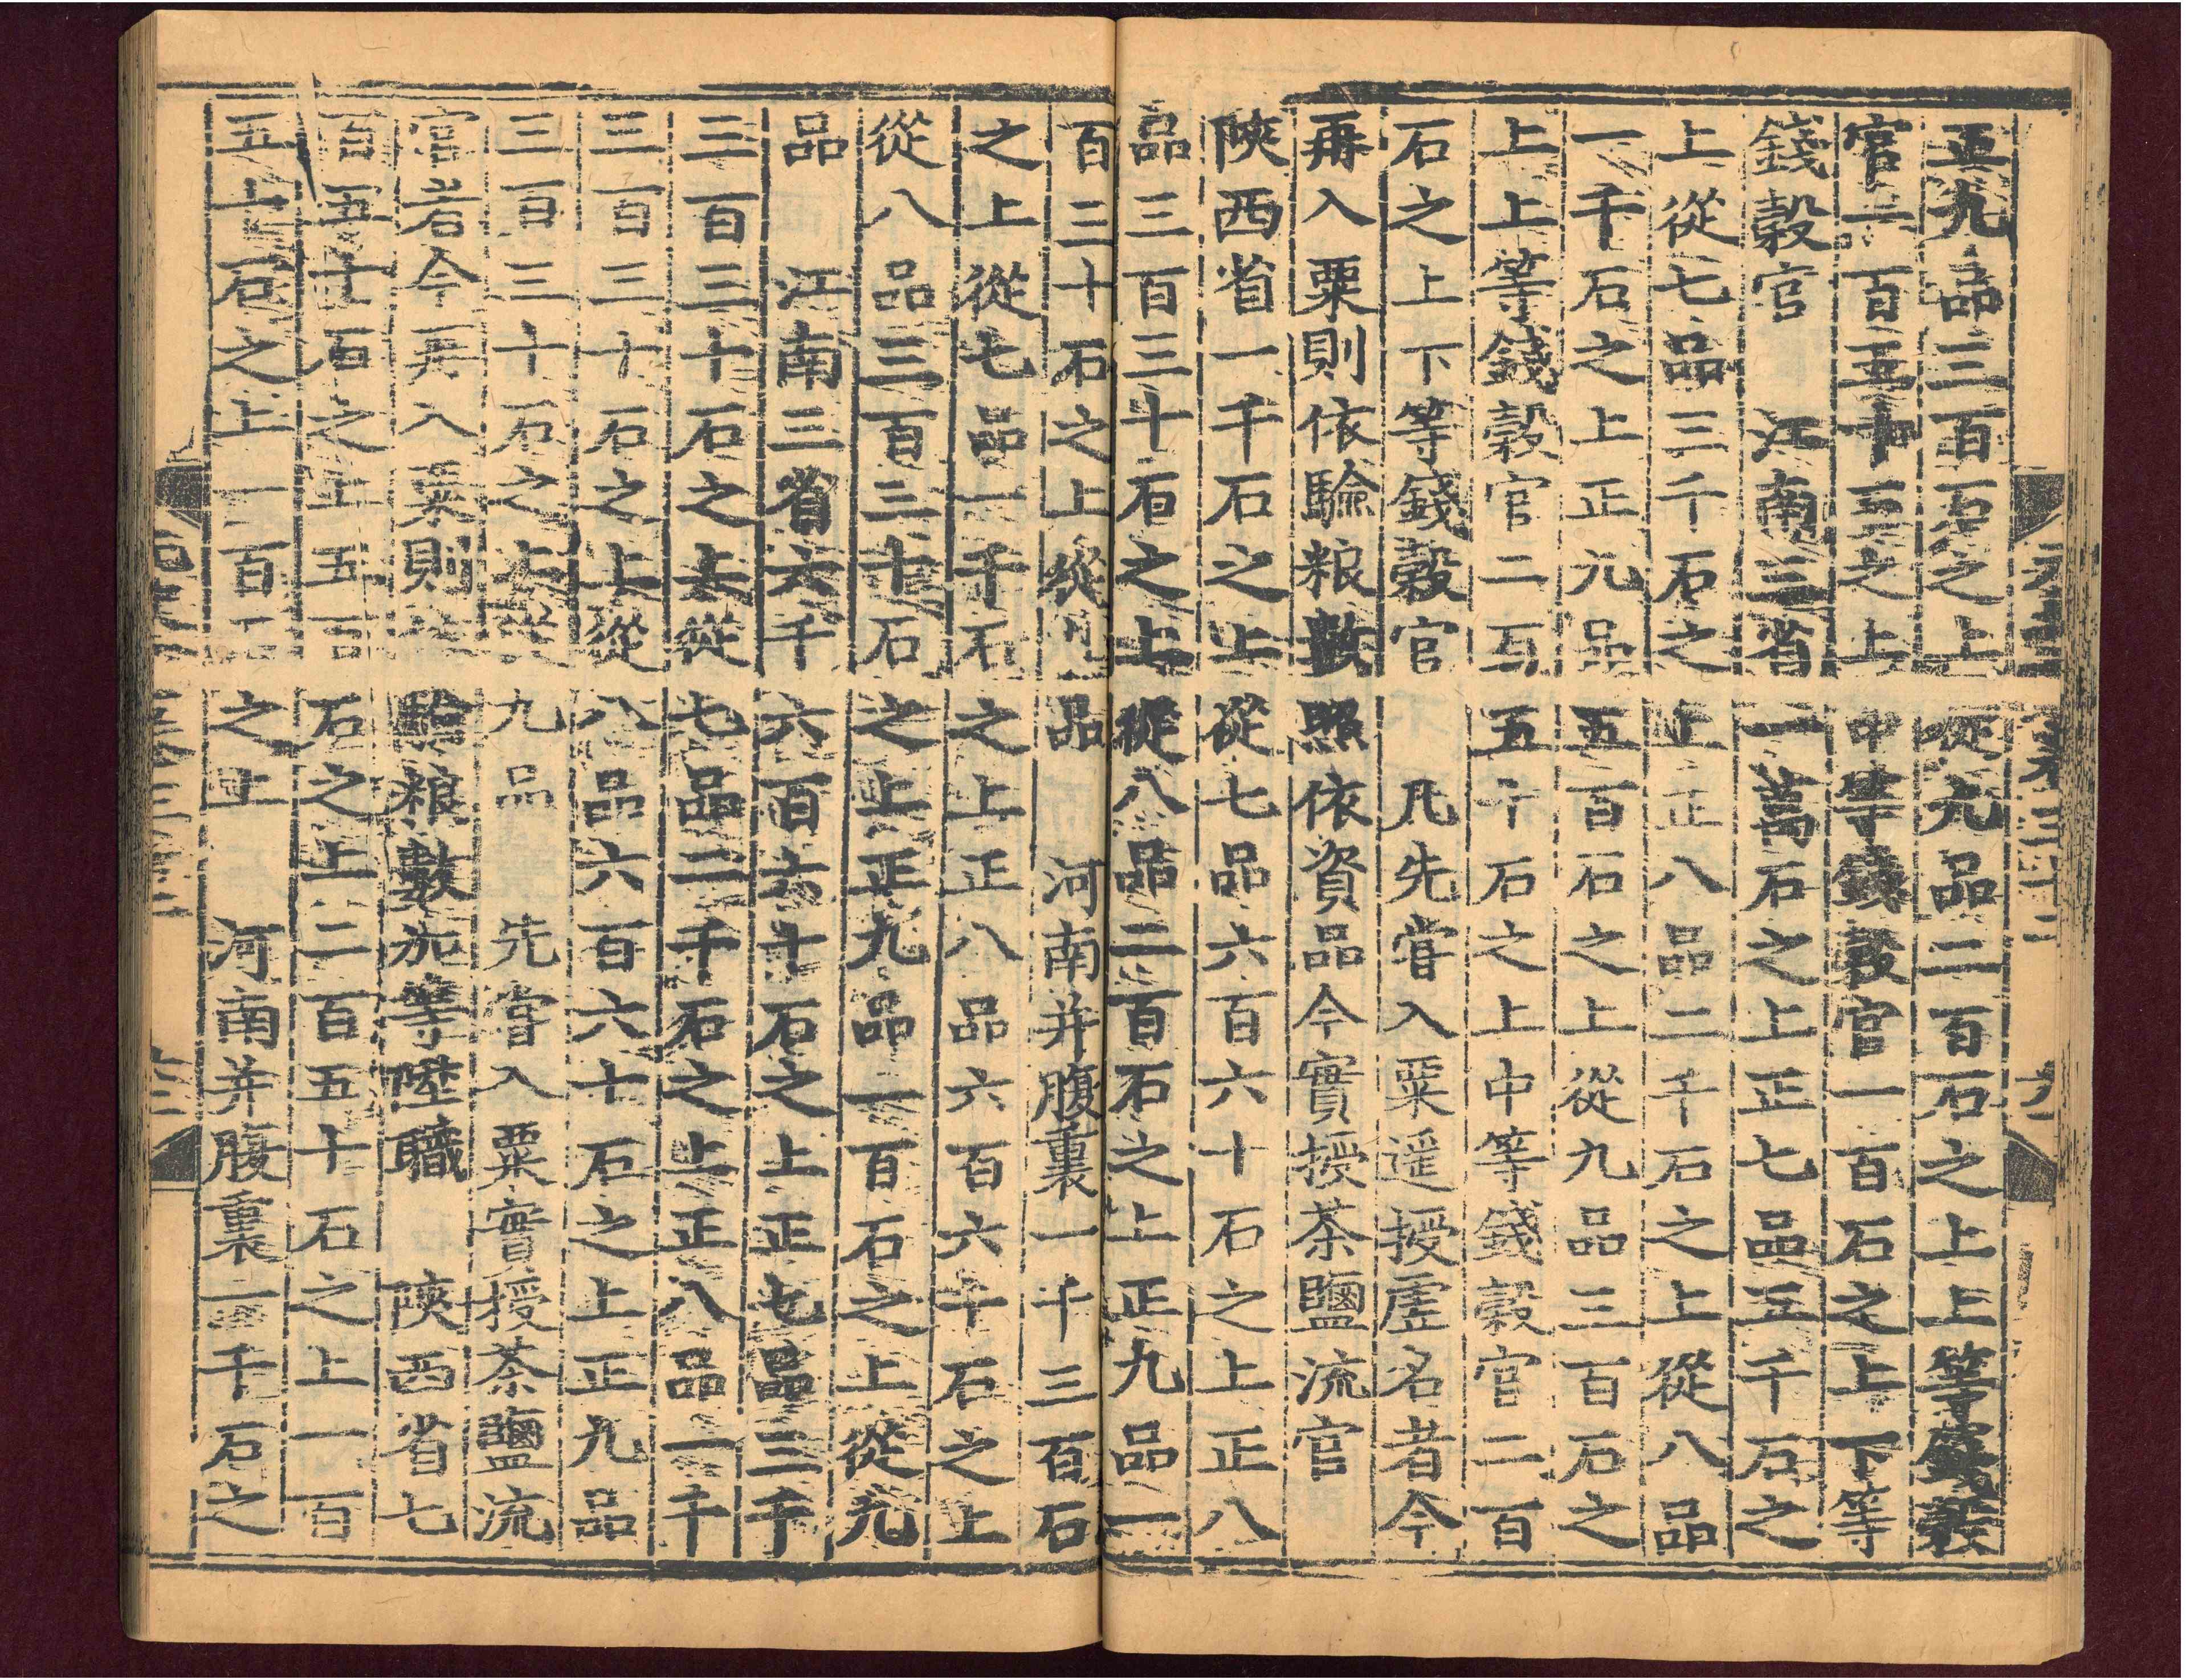 元史 卷三十二 九
正九品三百石之上從九品二百石之上上等錢穀
官一百五十石之上中等錢穀官一百石之上下等
錢穀官 江南三省一萬石之上正七品五千石之
上從七品三千石之上正八品二千石之上從八品
一千石之上正九品五百石之上從九品三百石之
上上等錢穀官二百五十石之上中等錢穀官二百
石之上下等錢穀官 凡先嘗入粟遥授虛名者今
再入粟則依驗粮數照依資品今實授茶鹽流官
陝西省一千石之上從七品六百六十石之上正八
品三百三十石之上從八品二百石之上正九品一
百三十石之上從九品 河南并腹裏一千三百石
之上從七品一千石之上正八品六百六十石之上
從八品三百三十石之上正九品二百石之上從九
品 江南三省六千六百六十石之上正七品三千
三百三十石之上從七品二千石之上正八品一千
三百三十石之上從八品六百六十石之上正九品
三百三十石之上從九品 先嘗入粟實授茶鹽流
官者今再入粟則依驗粮數加等陞職 陝西省七
百五十石之上五百石之上二百五十石之上一百
五十石之上一百石之上 河南并腹裏一千石之